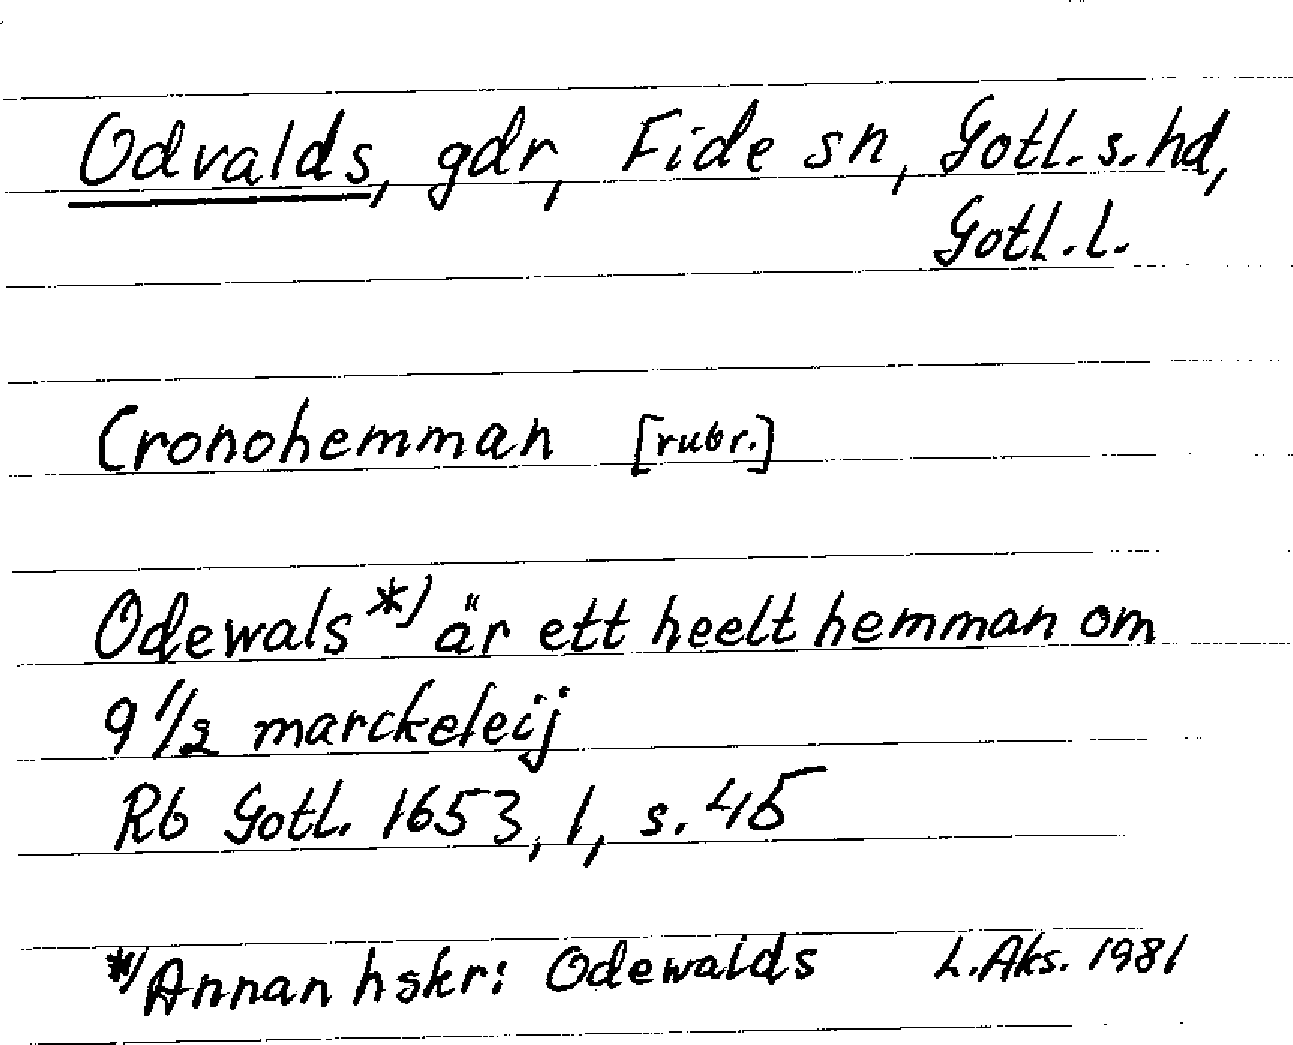 Odvalds, gdr, Fide sn, Gotl. s. hd,
Gotl. l.
Cronohemman [rubr.]
Odewals *) är ett heelt hemman om
9 1/2 marckeleij
Rb Gotl. 1653, 1, s. 45
*) Annan hskr: Odewalds L. Aks. 1981